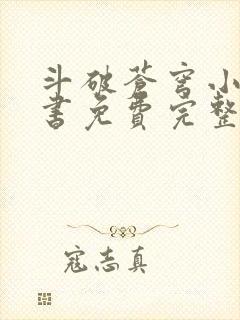 斗破苍穹小
書免費完整
寇志真